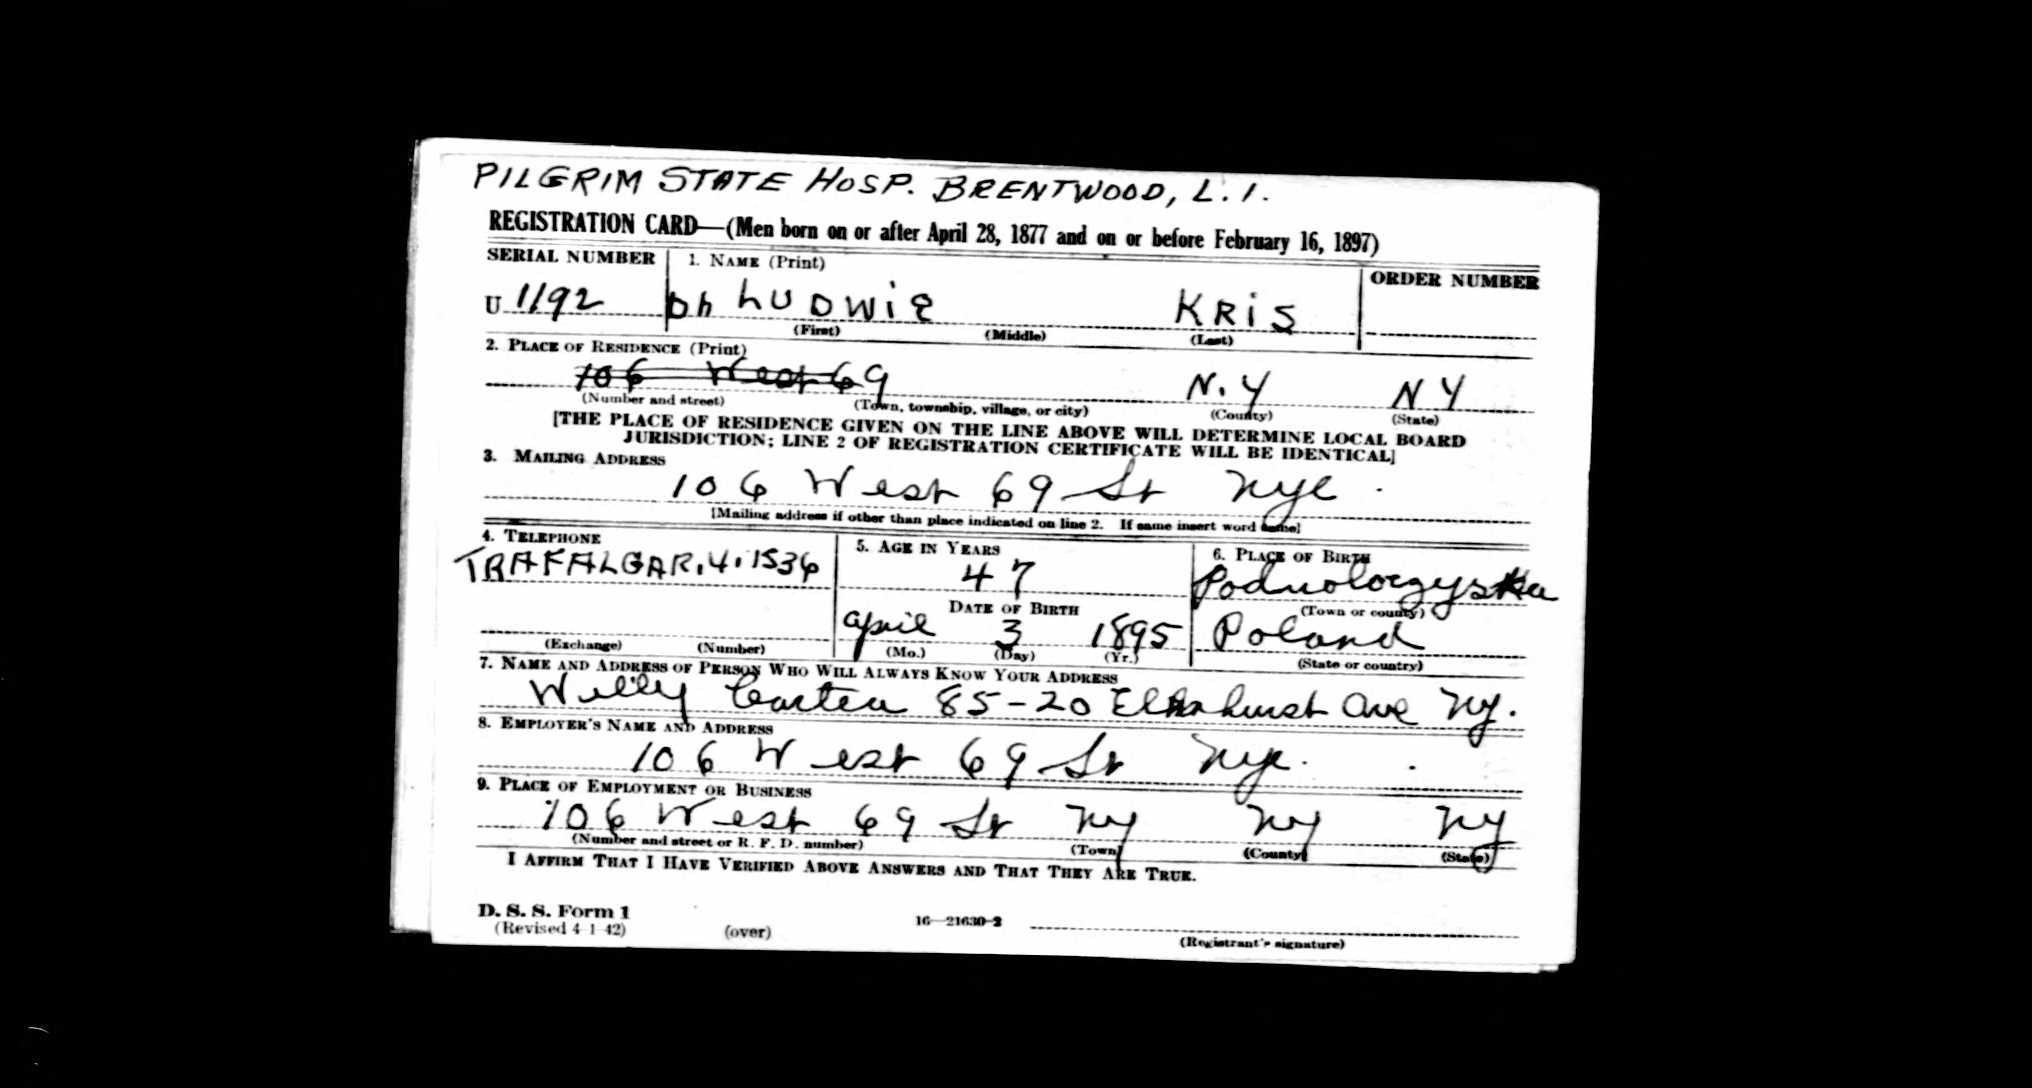 PILGRIM STATE HOSP. BRENTWOOD, L.I.
REGISTRATION CARD—(Men born on or after April 28, 1877 and on or before February 16, 1897)
SERIAL NUMBER 1. NAME (Print) ORDER NUMBER
U 1192 DR LUDWIG KRIS
(First) (Middle) (Last)
2. PLACE OF RESIDENCE (Print)
106 West 69 N.Y NY
(Number and street) (Town, township, village, or city) (County) (State)
[THE PLACE OF RESIDENCE GIVEN ON THE LINE ABOVE WILL DETERMINE LOCAL BOARD
JURISDICTION; LINE 2 OF REGISTRATION CERTIFICATE WILL BE IDENTICAL]
3. MAILING ADDRESS
106 West 69 St Nyc
[Mailing address if other than place indicated on line 2. If same insert word same]
4. TELEPHONE 5. AGE IN YEARS 6. PLACE OF BIRTH
TRAFALGAR.4.1536 47
DATE OF BIRTH (Town or county)
April 3 1895 Poland
(Exchange) (Number) (Mo.) (Day) (Yr.) (State or country)
7. NAME AND ADDRESS OF PERSON WHO WILL ALWAYS KNOW YOUR ADDRESS
Willy 85-20 Elmhurst Ave Ny.
8. EMPLOYER'S NAME AND ADDRESS
106 West 69 St Nyc.
9. PLACE OF EMPLOYMENT OR BUSINESS
106 West 69 St Ny Ny Ny
(Number and street or R. F. D. number) (Town) (County) (State)
I AFFIRM THAT I HAVE VERIFIED ABOVE ANSWERS AND THAT THEY ARE TRUE.
D. S. S. Form 1
(Revised 4-1-42) (over) 16—21630-2
(Registrant's signature)